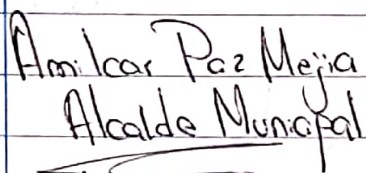 Amilcar Paz Mejia
Alcalde Municipal